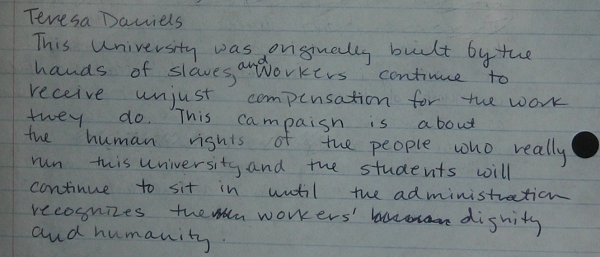 Teresa Daniels
This University was originally built by the
hands of slaves and Workers continue to
receive unjust compensation for the work
they do. This campaign is about
the human rights of the people who really
run this university and the students will
continue to sit in until the administration
recognizes the workers' dignity
and humanity.